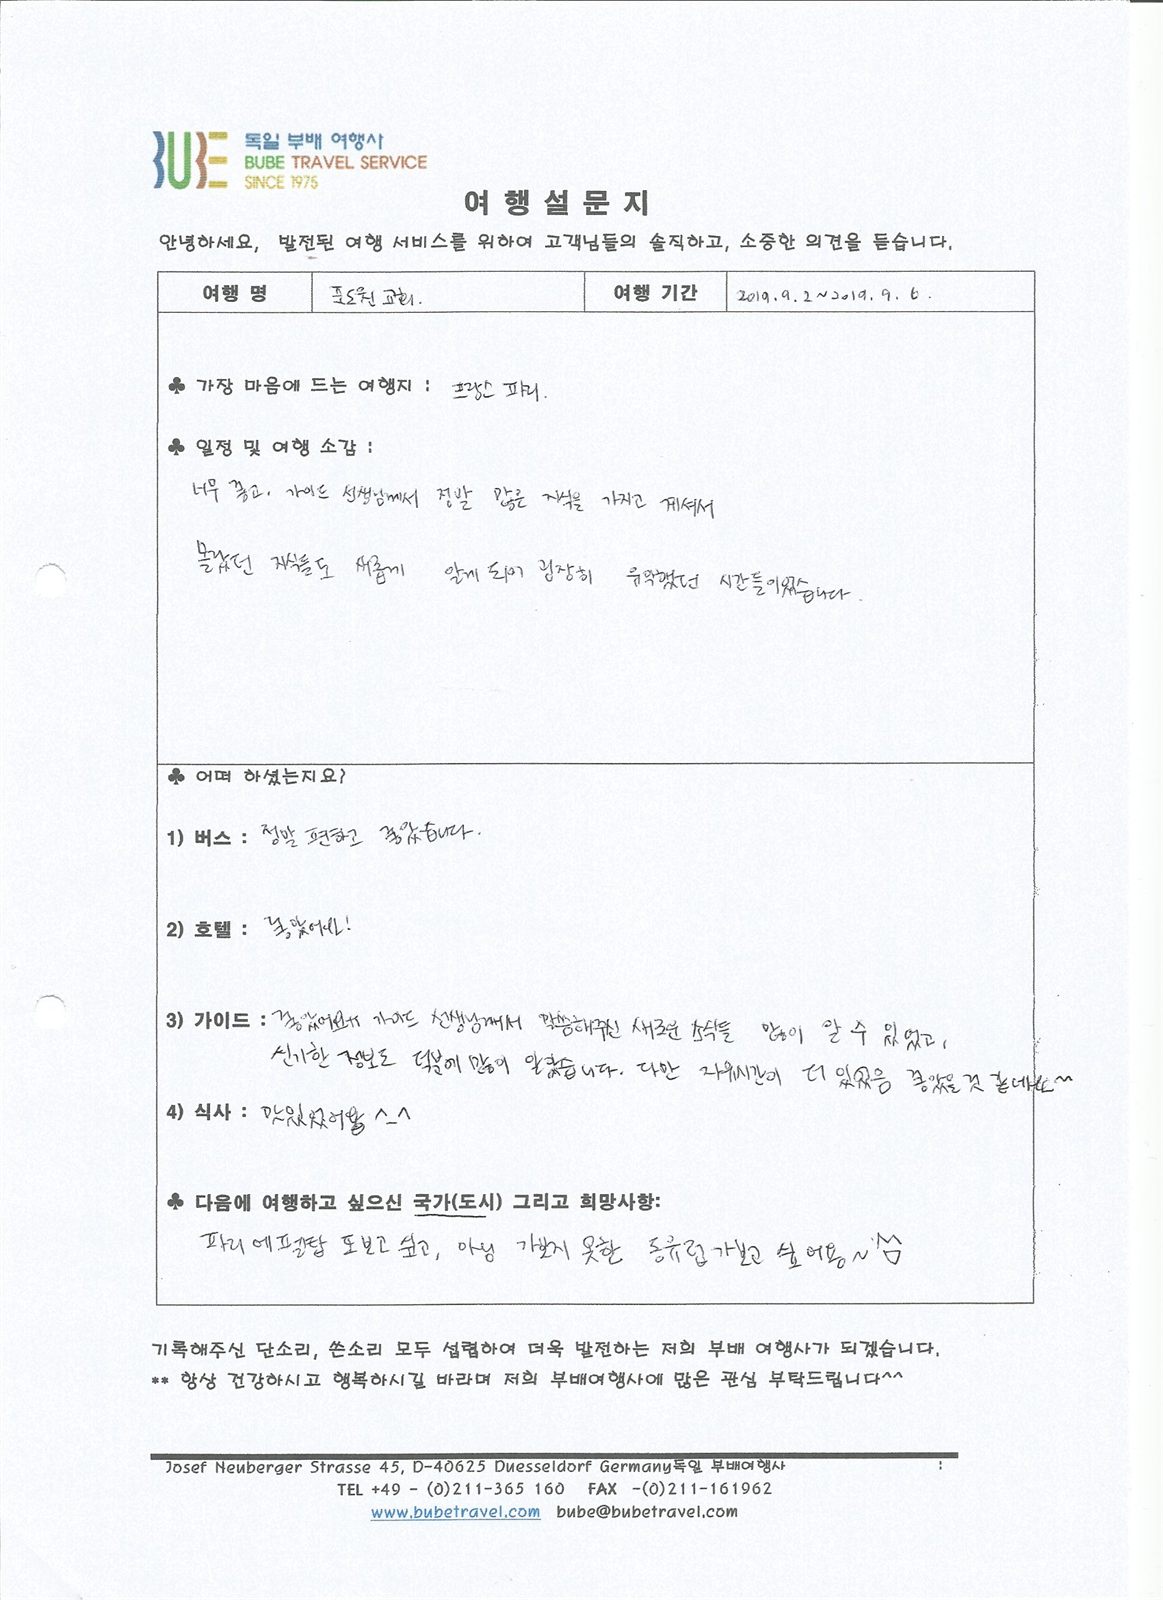 BUBE
독일 부배 여행사
BUBE TRAVEL SERVICE
SINCE 1975
여 행 설 문 지
안녕하세요, 발전된 여행 서비스를 위하여 고객님들의 솔직하고, 소중한 의견을 듣습니다.
여행 명 포도원 교회. 여행 기간 2019.9.2~2019.9.6.
♣ 가장 마음에 드는 여행지 : 프랑스 파리.
♣ 일정 및 여행 소감 :
너무 좋고. 가이드 선생님께서 정말 많은 지식을 가지고 계셔서
몰랐던 지식들도 새롭게 알게 되어 굉장히 유익했던 시간들이었습니다.
♣ 어떠 하셨는지요?
1) 버스 : 정말 편하고 좋았습니다.
2) 호텔 : 좋았어요!
3) 가이드 : 좋았어요!! 가이드 선생님께서 말씀해주신 새로운 소식들 많이 알 수 있었고,
신기한 정보도 덕분에 많이 알았습니다. 다만 자유시간이 더 있었음 좋았을 것 같네요~
4) 식사 : 맛있었어용 ^_^
♣ 다음에 여행하고 싶으신 국가(도시) 그리고 희망사항:
파리 에펠탑 또보고 싶고, 아님 가보지 못한 동유럽 가보고 싶어용~
기록해주신 단소리, 쓴소리 모두 섭렵하여 더욱 발전하는 저희 부배 여행사가 되겠습니다.
** 항상 건강하시고 행복하시길 바라며 저희 부배여행사에 많은 관심 부탁드립니다^^
Josef Neuberger Strasse 45, D-40625 Duesseldorf Germany독일 부배여행사 :
TEL +49 - (0)211-365 160 FAX -(0)211-161962
www.bubetravel.com bube@bubetravel.com